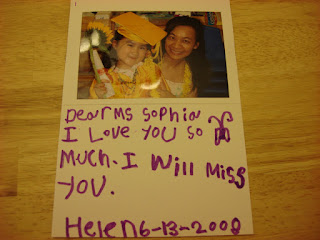 Dear Ms Sophia
I Love You so
Much. I Will Miss
You.
Helen 6-13-2008